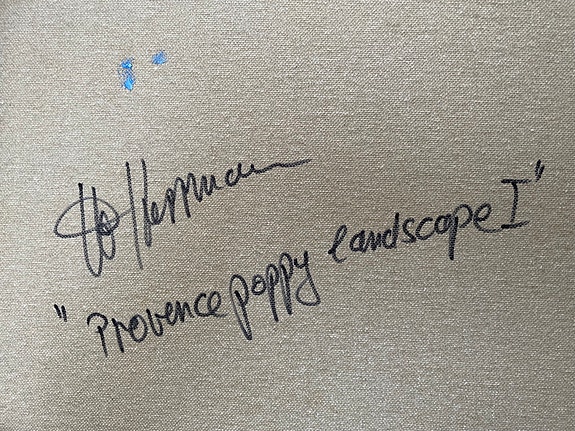 Herrmann
"Provence poppy landscape I"